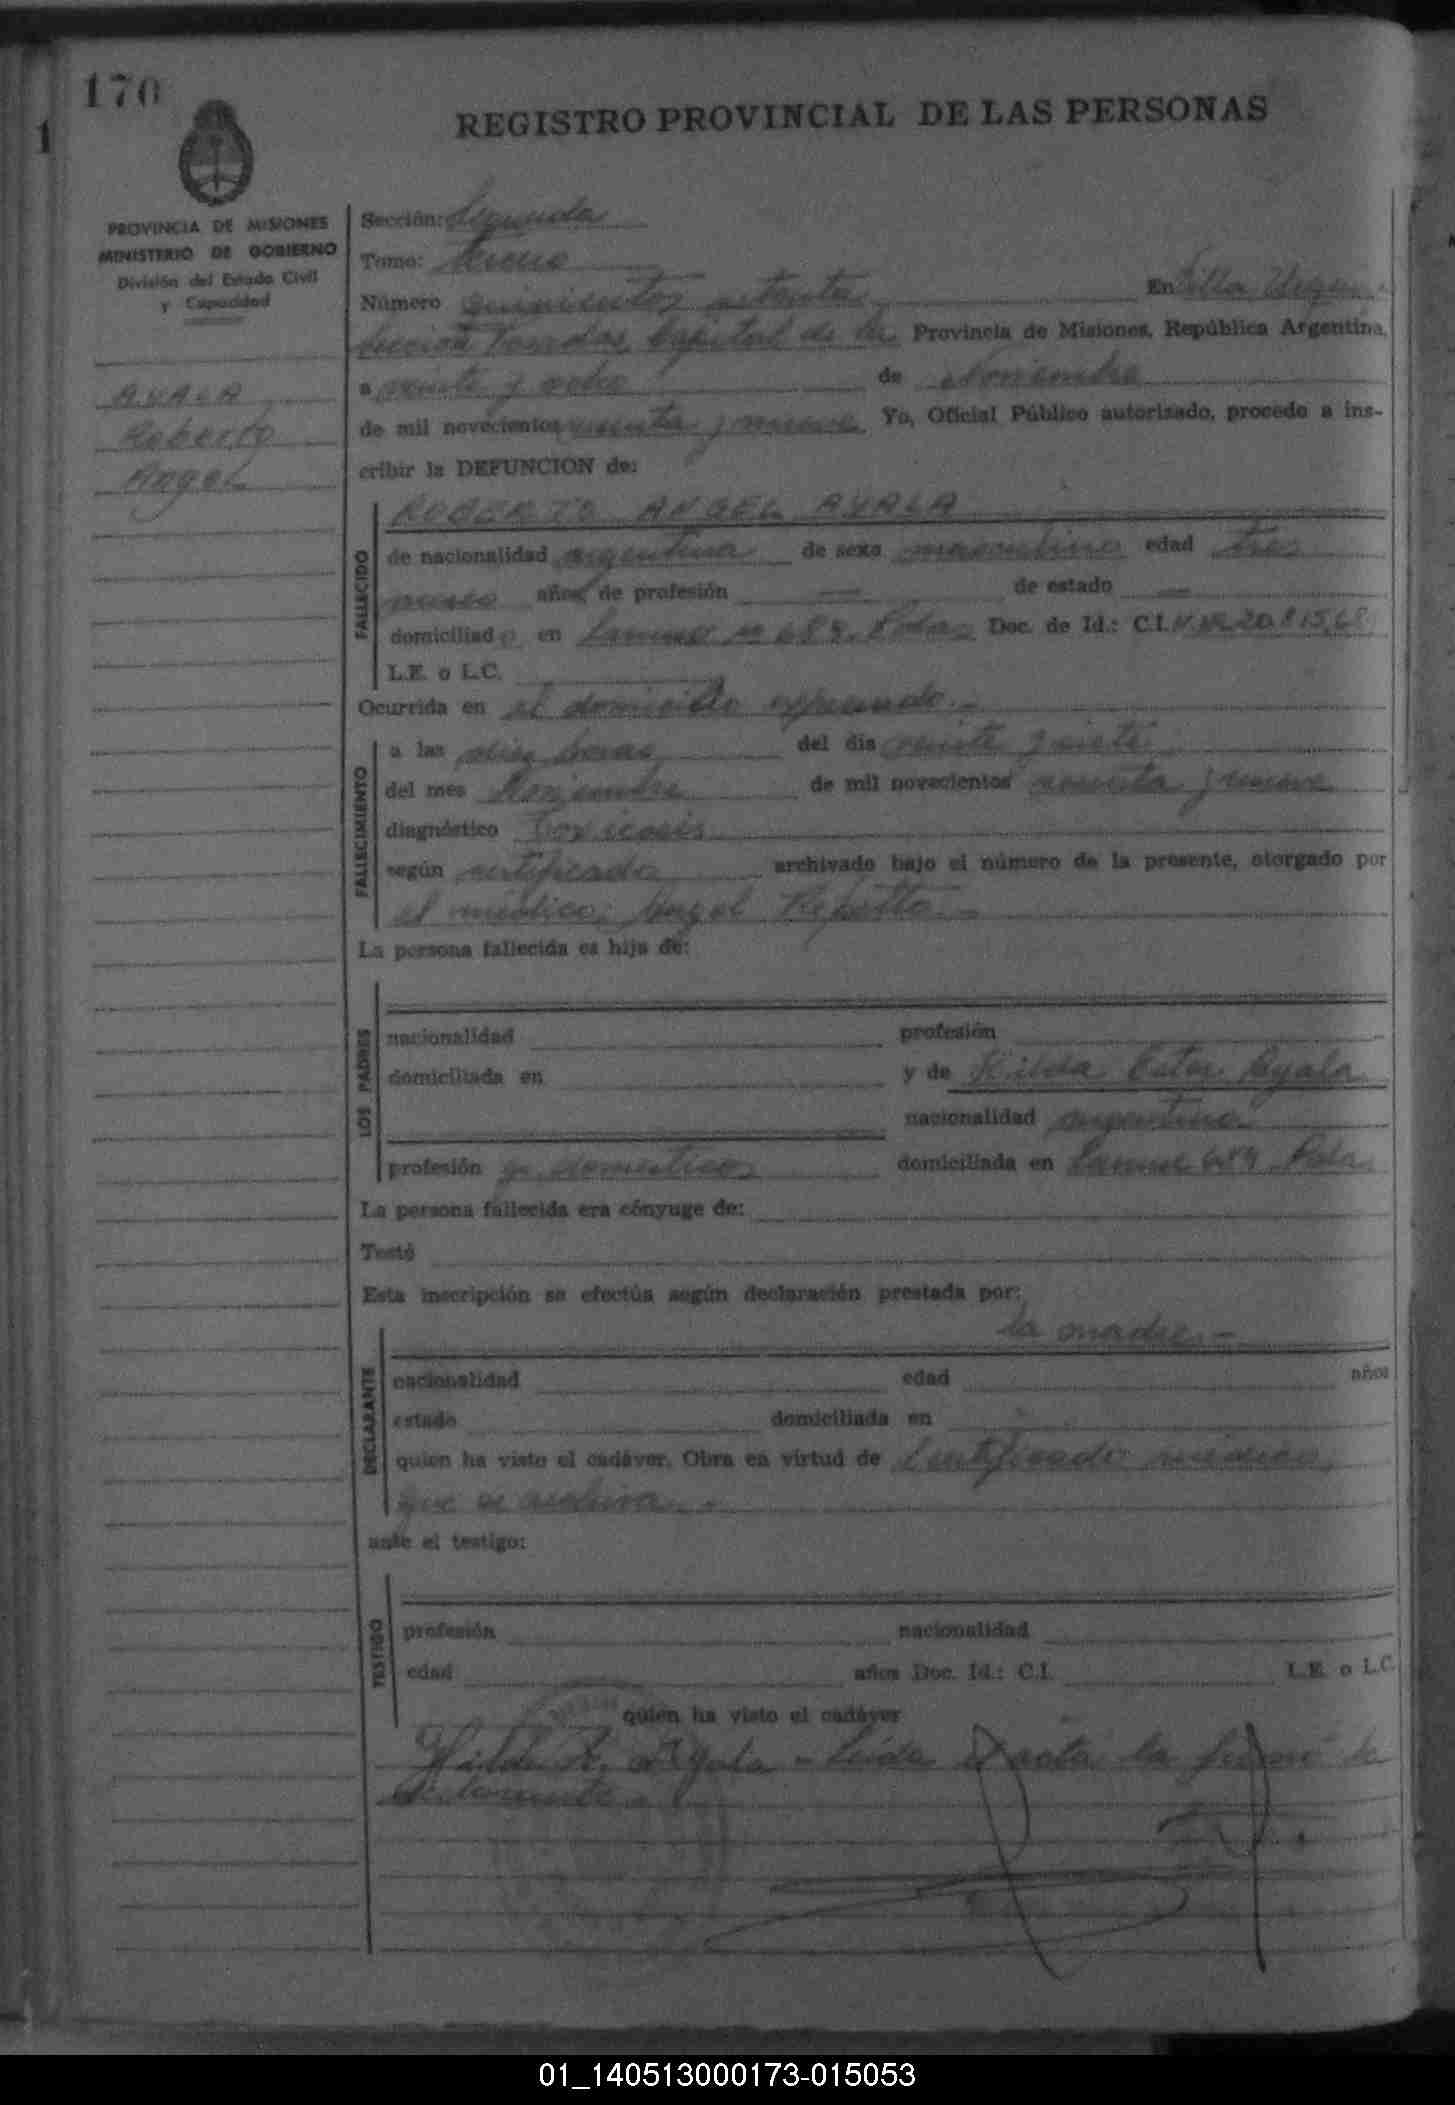 170
1
REGISTRO PROVINCIAL DE LAS PERSONAS
PROVINCIA DE MISIONES
MINISTERIO DE GOBIERNO
División del Estado Civil
y Capacidad
AYALA
Roberto
Angel
Sección: Segunda
Tomo:
Número quinientos En Villa
Posadas, Capital de la Provincia de Misiones, República Argentina,
a veinte y ocho de Noviembre
de mil novecientos y nueve Yo, Oficial Público autorizado, procedo a ins-
cribir la DEFUNCION de:
FALLECIDO
ROBERTO ANGEL AYALA
de nacionalidad argentina de sexo masculino edad tres
meses años de profesión — de estado —
domiciliado en Doc. de Id.: C.I.
L.E. o L.C.
Ocurrida en el domicilio expresado.-
FALLECIMIENTO
a las diez horas del día veinte y siete
del mes Noviembre de mil novecientos y nueve
diagnóstico Toxicosis
según certificado archivado bajo el número de la presente, otorgado por
el médico: Angel
La persona fallecida es hija de:
LOS PADRES
nacionalidad profesión
domiciliada en y de Hilda Ayala
nacionalidad argentina
profesión q. domésticos domiciliada en
La persona fallecida era cónyuge de:
Testó
Esta inscripción se efectúa según declaración prestada por:
la madre.-
DECLARANTE
nacionalidad edad años
estado domiciliada en
quien ha visto el cadáver. Obra en virtud de Certificado médico,
que se archiva.-
ante el testigo:
TESTIGO
profesión nacionalidad
edad años Doc. Id.: C.I. L.E. o L.C.
quien ha visto el cadáver
Hilda Ayala - Leída el acta la firmó la
declarante.-
01_140513000173-015053